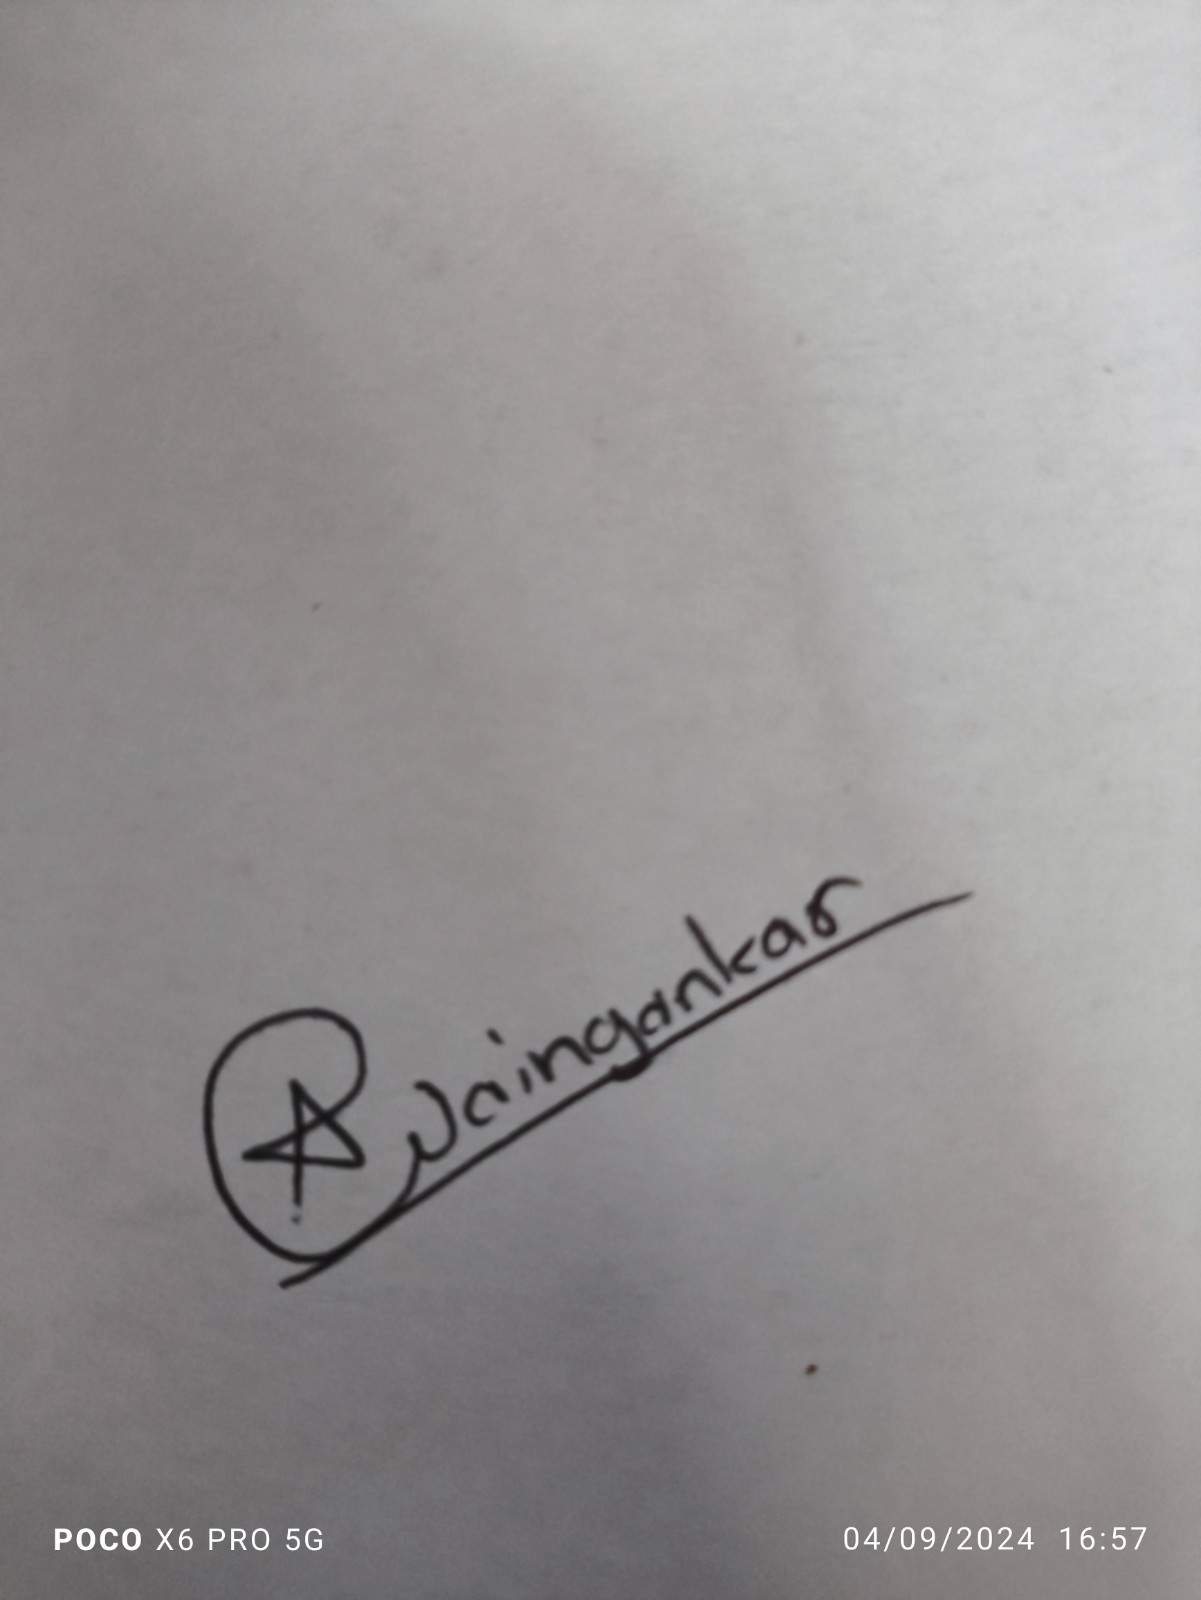 A Waingankar
POCO X6 PRO 5G
04/09/2024 16:57